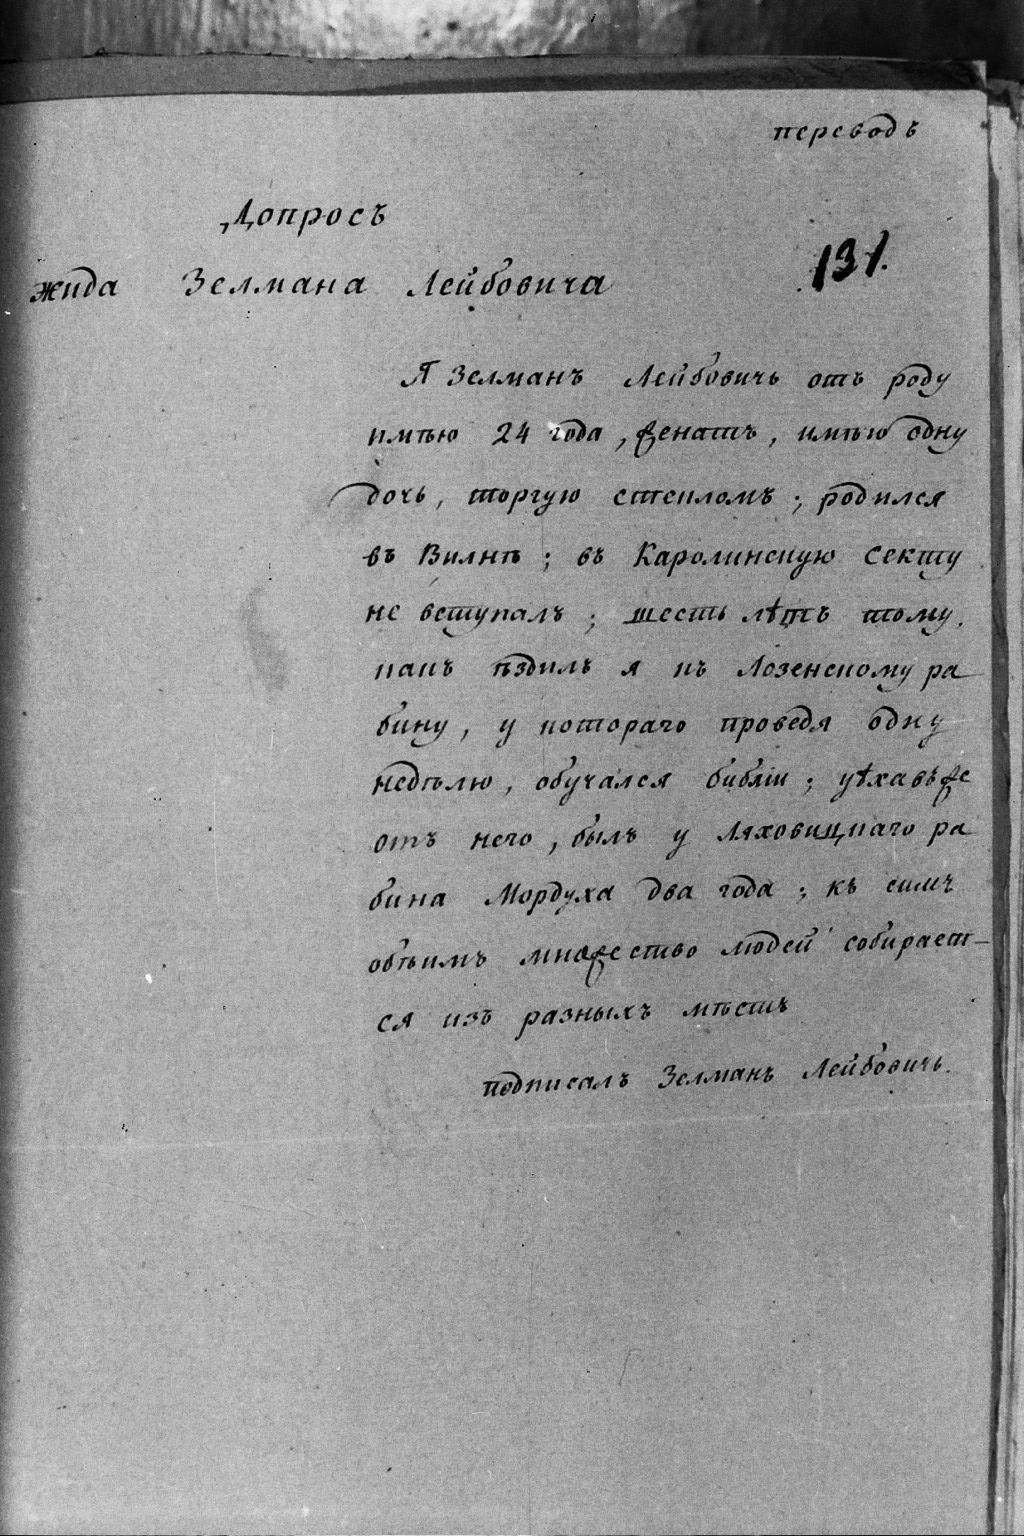 переводъ
Допросъ
131.
жида Зелмана Лейбовича
Я Зелманъ Лейбовичь отъ роду
имѣю 24 года, женатъ, имѣю одну
дочь, торгую стекломъ; родился
въ Вилнѣ; въ Каролинскую секту
не вступалъ; шесть лѣтъ тому
какъ ѣздилъ я къ Лозенскому ра
бину, у котораго проведя одну
недѣлю, обучался библіи; уѣхавъ же
отъ него, былъ у Ляховицкаго ра
бина Мордуха два года; къ симъ
обѣимъ множество людей собирает-
ся изъ разныхъ мѣстъ
подписалъ Зелманъ Лейбовичь.